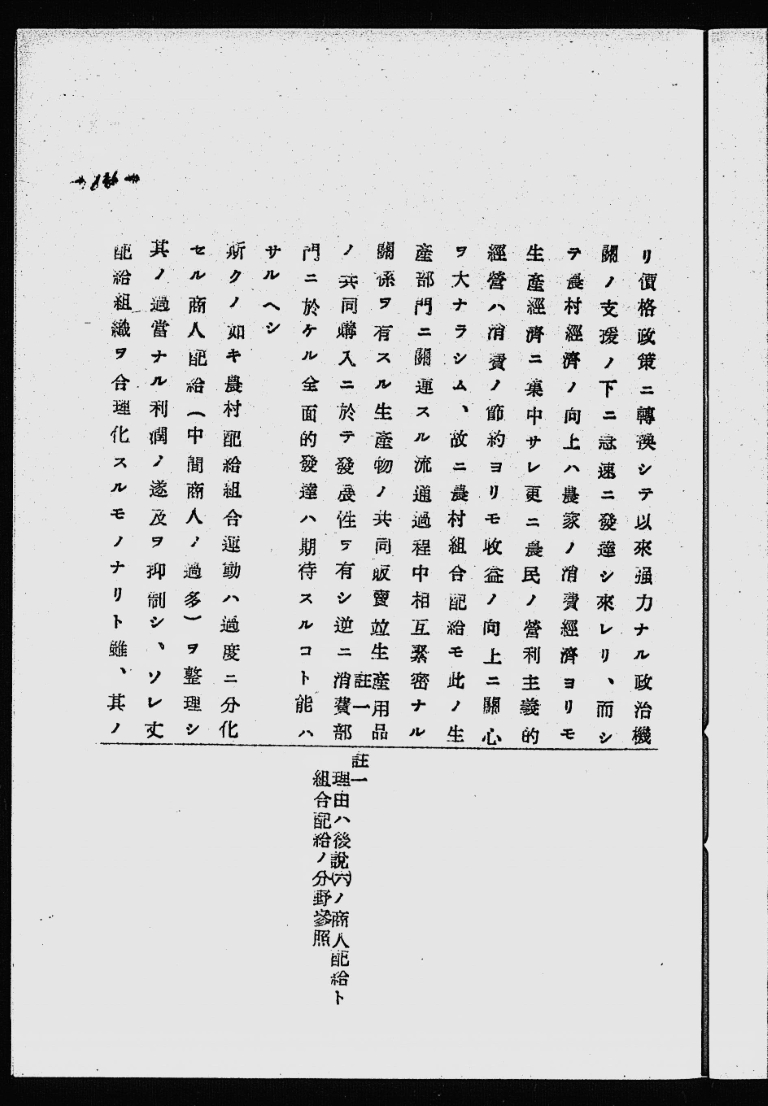 リ價格政策ニ轉換シテ以來强力ナル政治機
關ノ支援ノ下ニ急速ニ發達シ來レリ、而シ
テ農村經濟ノ向上ハ農家ノ消費經濟ヨリモ
生產經濟ニ集中サレ更ニ農民ノ營利主義的
經營ハ消費ノ節約ヨリモ收益ノ向上ニ關心
ヲ大ナラシム、故ニ農村組合配給モ此ノ生
產部門ニ關連スル流通過程中相互緊密ナル
關係ヲ有スル生產物ノ共同販賣竝生產用品
註一
ノ共同購入ニ於テ發展性ヲ有シ逆ニ消費部
門ニ於ケル全面的發達ハ期待スルコト能ハ
サルヘシ
斯クノ如キ農村配給組合運動ハ過度ニ分化
セル商人配給(中間商人ノ過多)ヲ整理シ
其ノ過當ナル利潤ノ遂及ヲ抑制シ、ソレ丈
配給組織ヲ合理化スルモノナリト雖、其ノ
註一
理由ハ後說(六)ノ商人配給ト
組合配給ノ分野參照